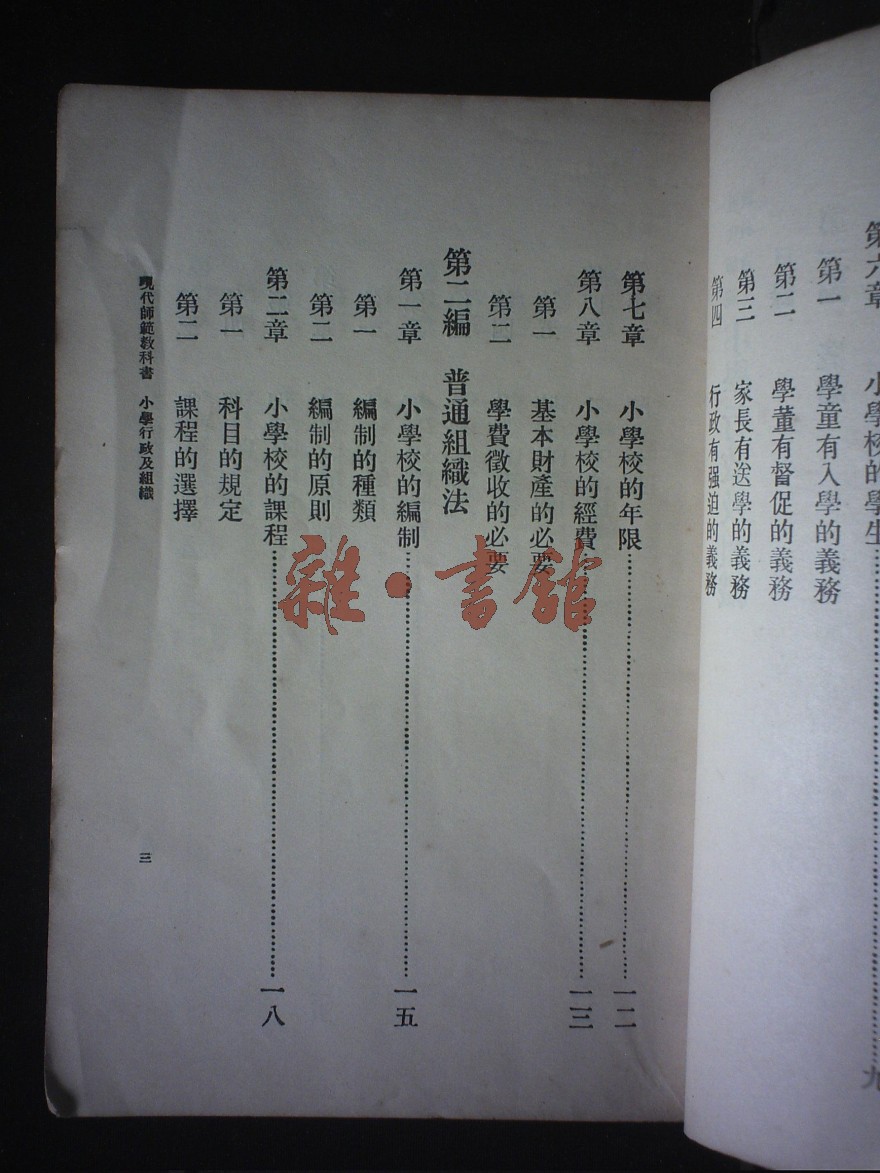 第六章 小學校的學生……九
第一 學童有入學的義務
第二 學董有督促的義務
第三 家長有送學的義務
第四 行政有强迫的義務
第七章 小學校的年限……一二
第八章 小學校的經費……一三
第一 基本財產的必要
第二 學費徵收的必要
第二編 普通組織法
第一章 小學校的編制……一五
第一 編制的種類
第二 編制的原則
第二章 小學校的課程……一八
第一 科目的規定
第二 課程的選擇
現代師範教科書 小學行政及組織 三
雜·書舘